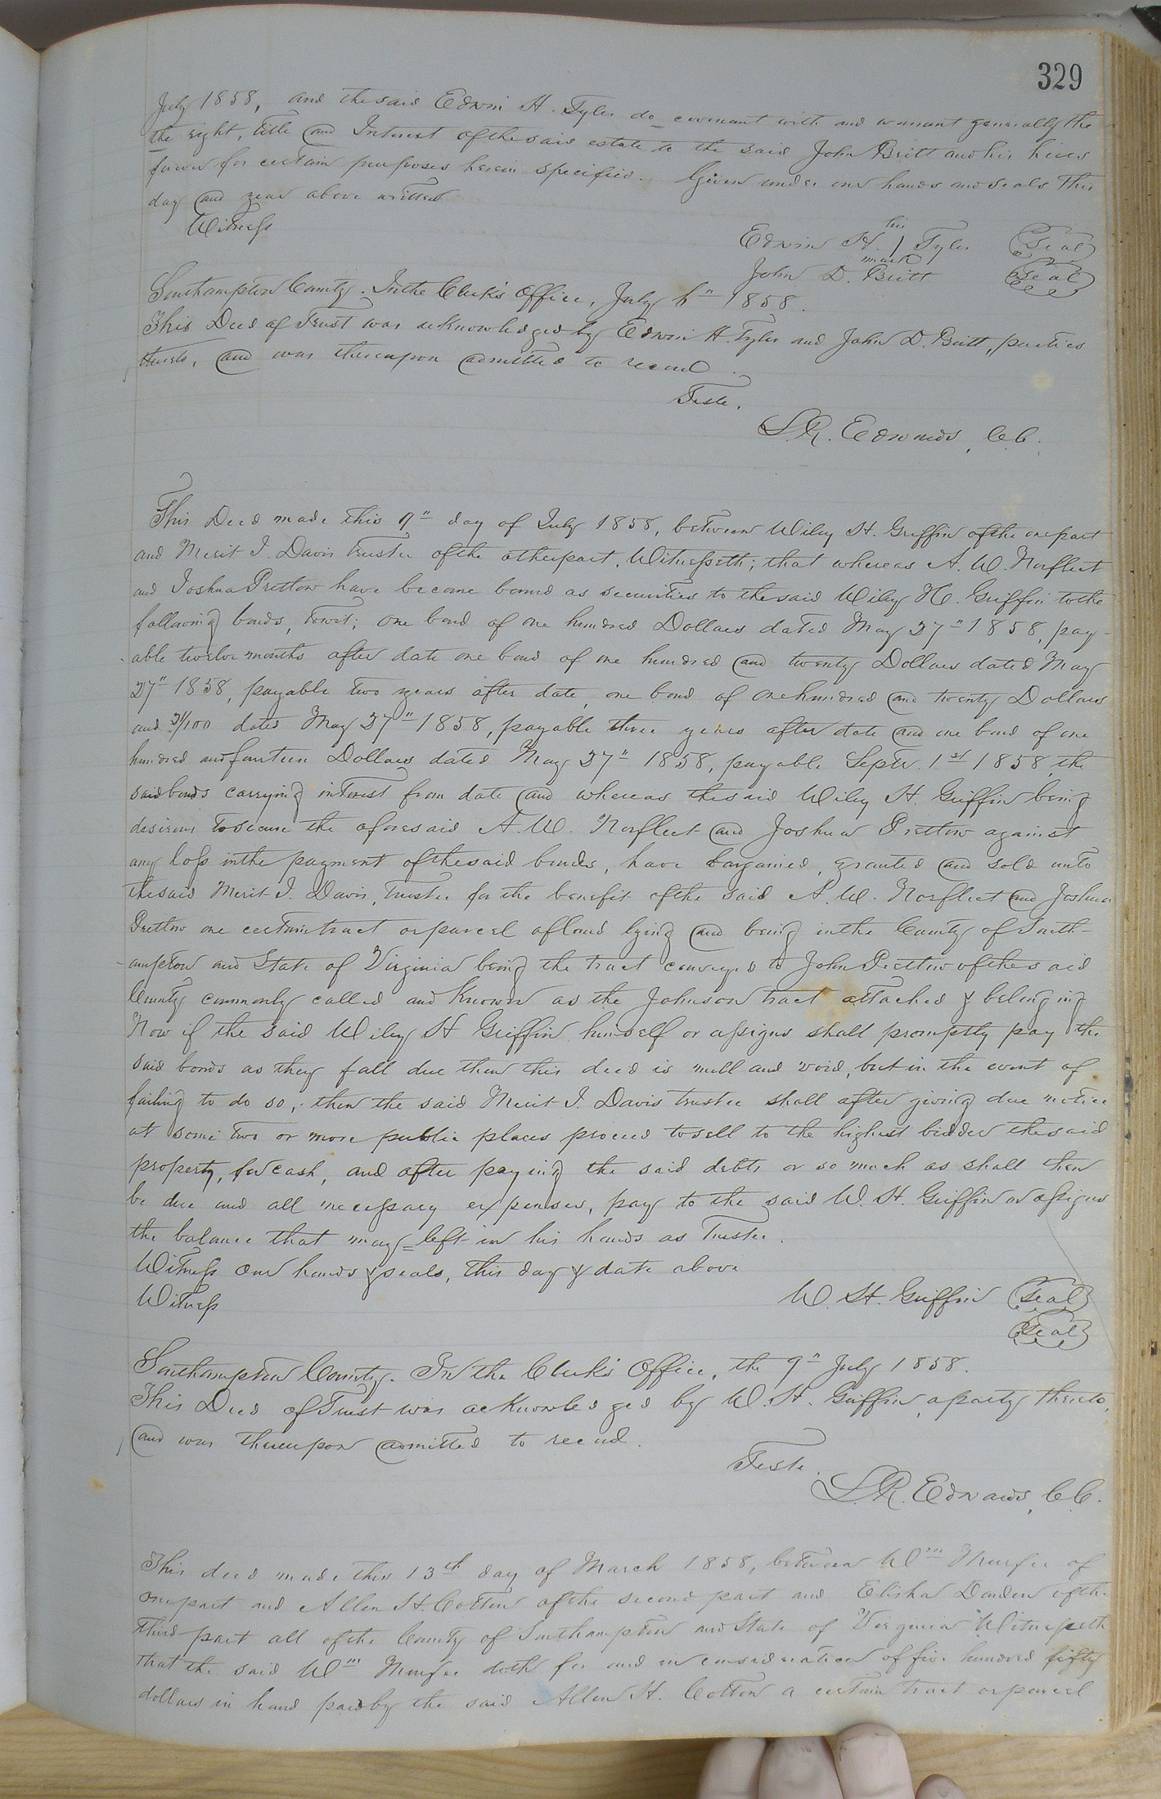 329
July 1858, and the said Edwin H. Tyler do covenant with and warrant generally the
the right, title and Interest of the said estate to the said John Britt and his heirs
for certain purposes herein specified. Given under our hands and seals this
day and year above written
Witness
his
Edwin H. ) Tyler (Seal)
mark
John D. Britt (Seal)
Southampton County. In the Clerk's Office, July 1858.
This Deed of Trust was acknowledged by Edwin H. Tyler and John D. Britt, parties
thereto, and was thereupon admitted to record.
Teste.
L.R. Edwards, C.C.
This Deed made this 9" day of July 1858, between Wiley H. Griffin of the one part
and Merit I. Davis trustee of the other part, Witnesseth; that whereas A. W. Norfleet
and Joshua Pretlow have become bound as securities to the said Wiley H. Griffin to the
following bonds, towit; one bond of one hundred Dollars dated May 27" 1858, pay-
able twelve months after date one bond of one hundred and twenty Dollars dated May
27" 1858, payable two years after date, one bond of one hundred and twenty Dollars
and 31/100 dated May 27" 1858, payable three years after date and one bond of one
hundred and fourteen Dollars dated May 27" 1858, payable Septr. 1st 1858, the
said bonds carrying interest from date and whereas the said Wiley H. Griffin being
desirous to secure the aforesaid A. W. Norfleet and Joshua Pretlow against
any loss in the payment of the said bonds, have bargained, granted and sold unto
the said Merit I. Davis, trustee for the benefit of the said A. W. Norfleet and Joshua
Pretlow one certain tract or parcel of land lying and being in the County of South-
ampton and State of Virginia being the tract conveyed to John Pretlow of the said
County commonly called and known as the Johnson tract attached & belonging
Now if the said Wiley H Griffin himself or assigns shall promptly pay the
said bonds as they fall due then this deed is null and void, but in the event of
failing to do so, then the said Merit I. Davis trustee shall after giving due notice
at some two or more public places proceed to sell to the highest bidder the said
property, for cash, and after paying the said debts or so much as shall then
be due and all necessary expenses, pay to the said W. H. Griffin or assigns
the balance that may left in his hands as Trustee.
Witness our hands & seals, this day & date above
Witness W. H. Griffin (Seal)
(Seal)
Southampton County. In the Clerk's Office, the 9" July 1858.
This Deed of Trust was acknowledged by W. H. Griffin, a party thereto,
and was thereupon admitted to record.
Teste.
L.R. Edwards, C.C.
This deed made this 13th day of March 1858, between Wm Murfee of
one part and Allen H. Cotton of the second part and Elisha Darden of the
third part all of the County of Southampton and State of Virginia Witnesseth
that the said Wm Murfee doth for and in consideration of five hundred fifty
dollars in hand paid by the said Allen H. Cotton a certain tract or parcel